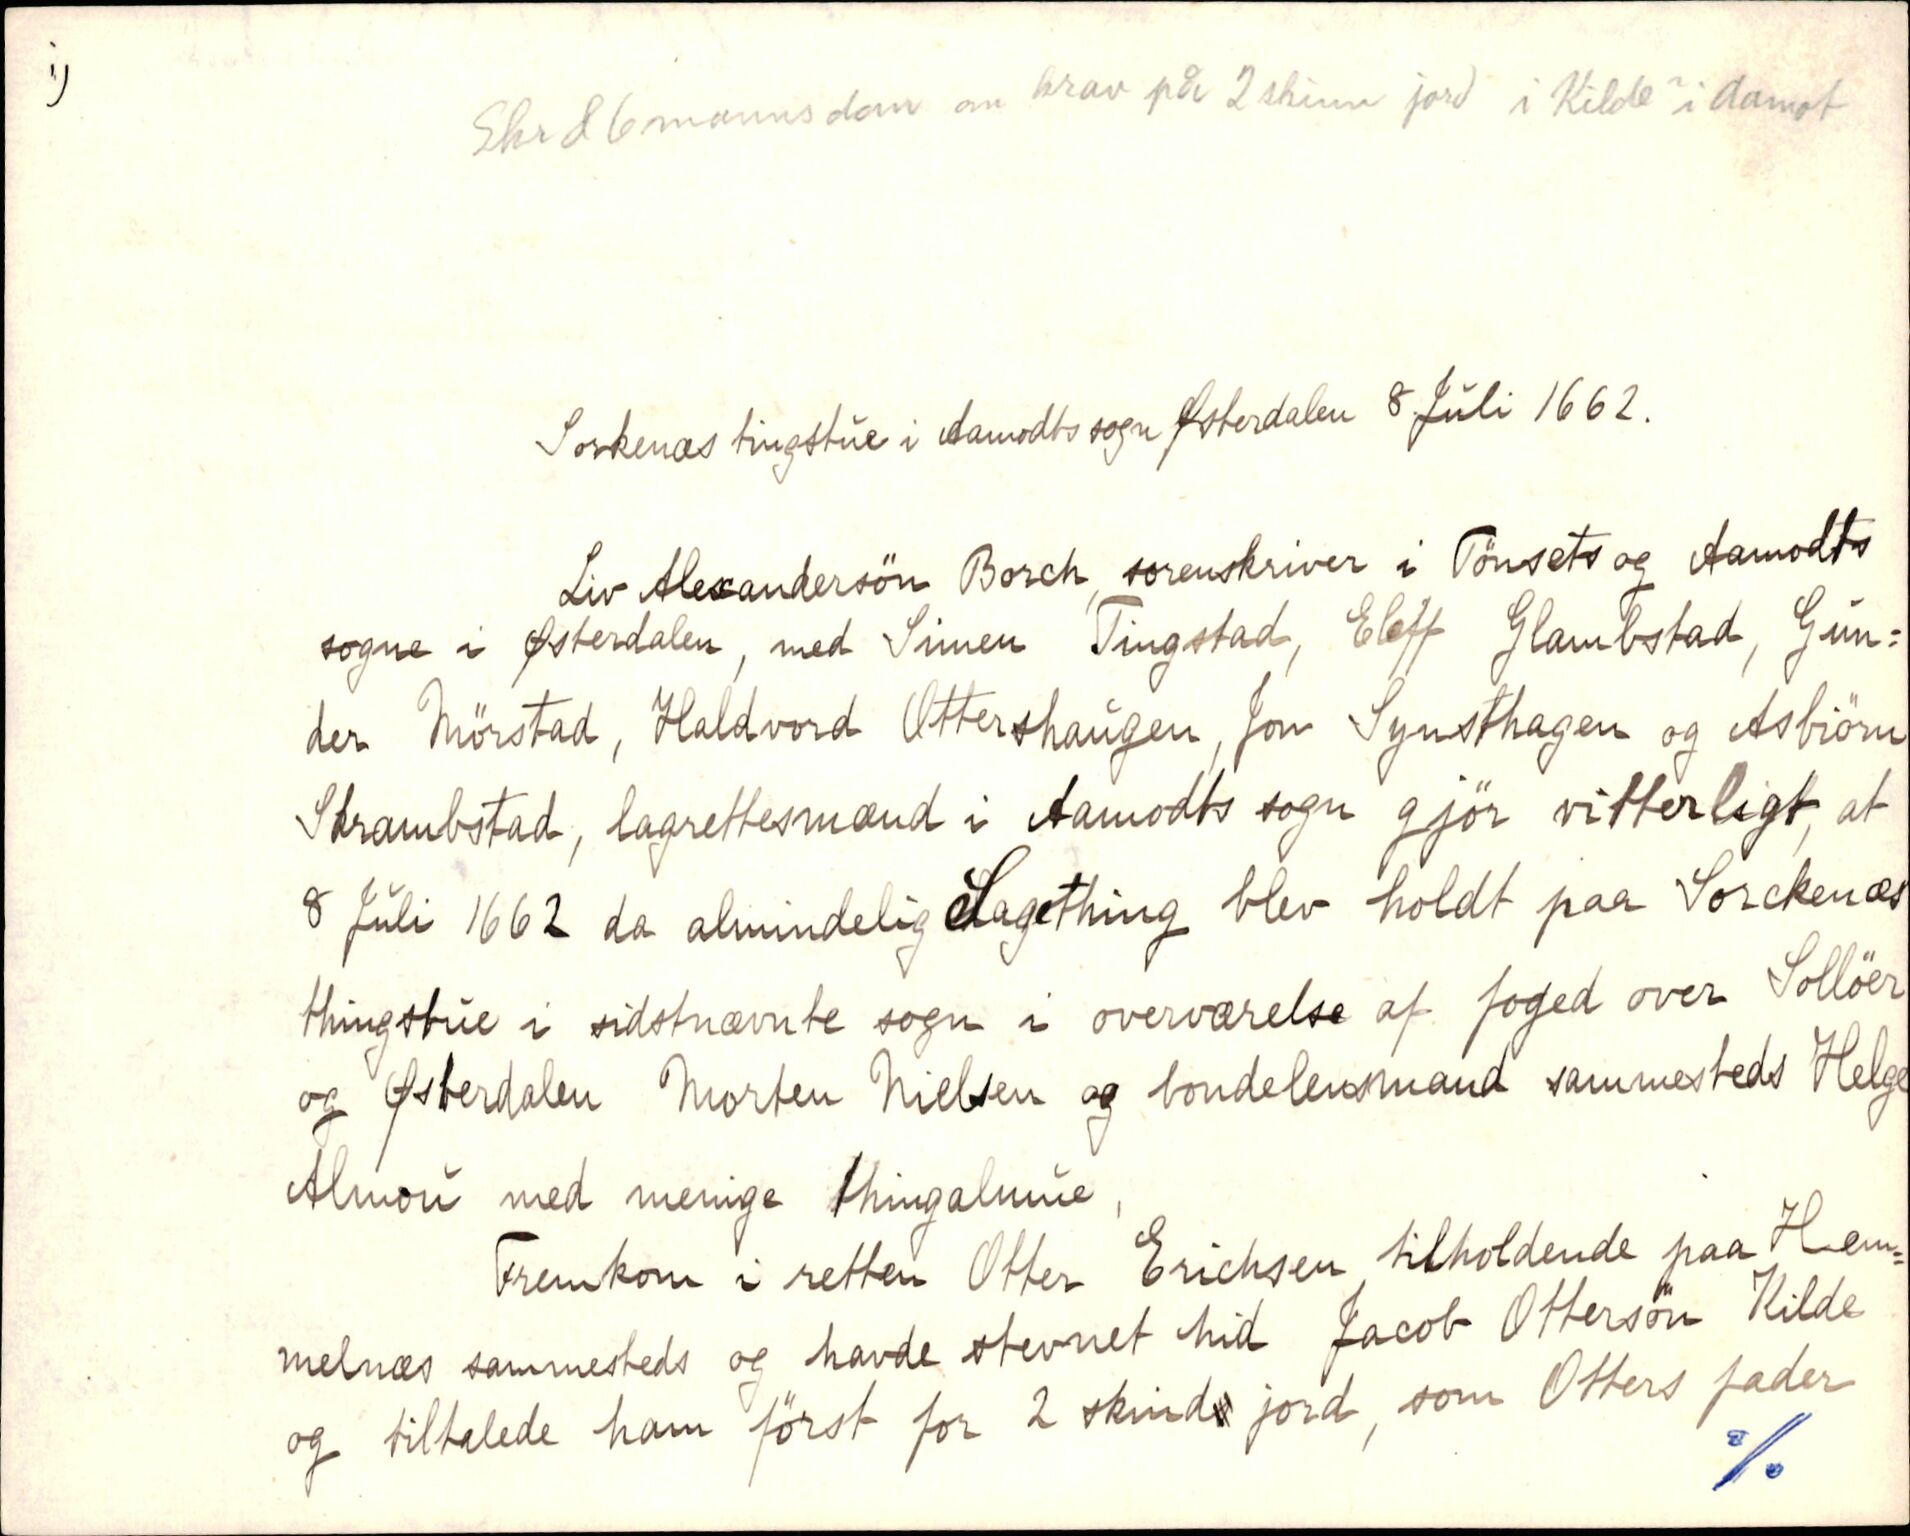 1)
Skr & 6 mannsdom om krav på 2 skinn jord i Kilde i Aamot
Sorkenæs tingstŭe i Aamodts sogn Østerdalen 8 Jŭli 1662.
Liv Alexandersön Borch, sorenskriver i Tönsets og Aamodts
sogne i Østerdalen, med Simen Tingstad, Eleff Glambstad, Gŭn=
der Mörstad, Haldvord Ottershaŭgen, Jon Synsthagen og Asbiörn
Skrambstad, lagrettesmænd i Aamodts sogn gjör vitterligt, at
8 Jŭli 1662 da almindelig Sagething blev holdt paa Sorckenæs
thingstŭe i sidstnævnte sogn i overværelse af foged over Sollöer
og Østerdalen Morten Nielsen og bondelensmand sammesteds Helge
Almoŭ med menige thingalmŭe,
Fremkom i retten Otter Erichsen tilholdende paa Hem=
melnæs sammesteds og havde stevnet hid Jacob Ottersön Kilde
og tiltalede ham först for 2 skind jord, som Otters fader
./.